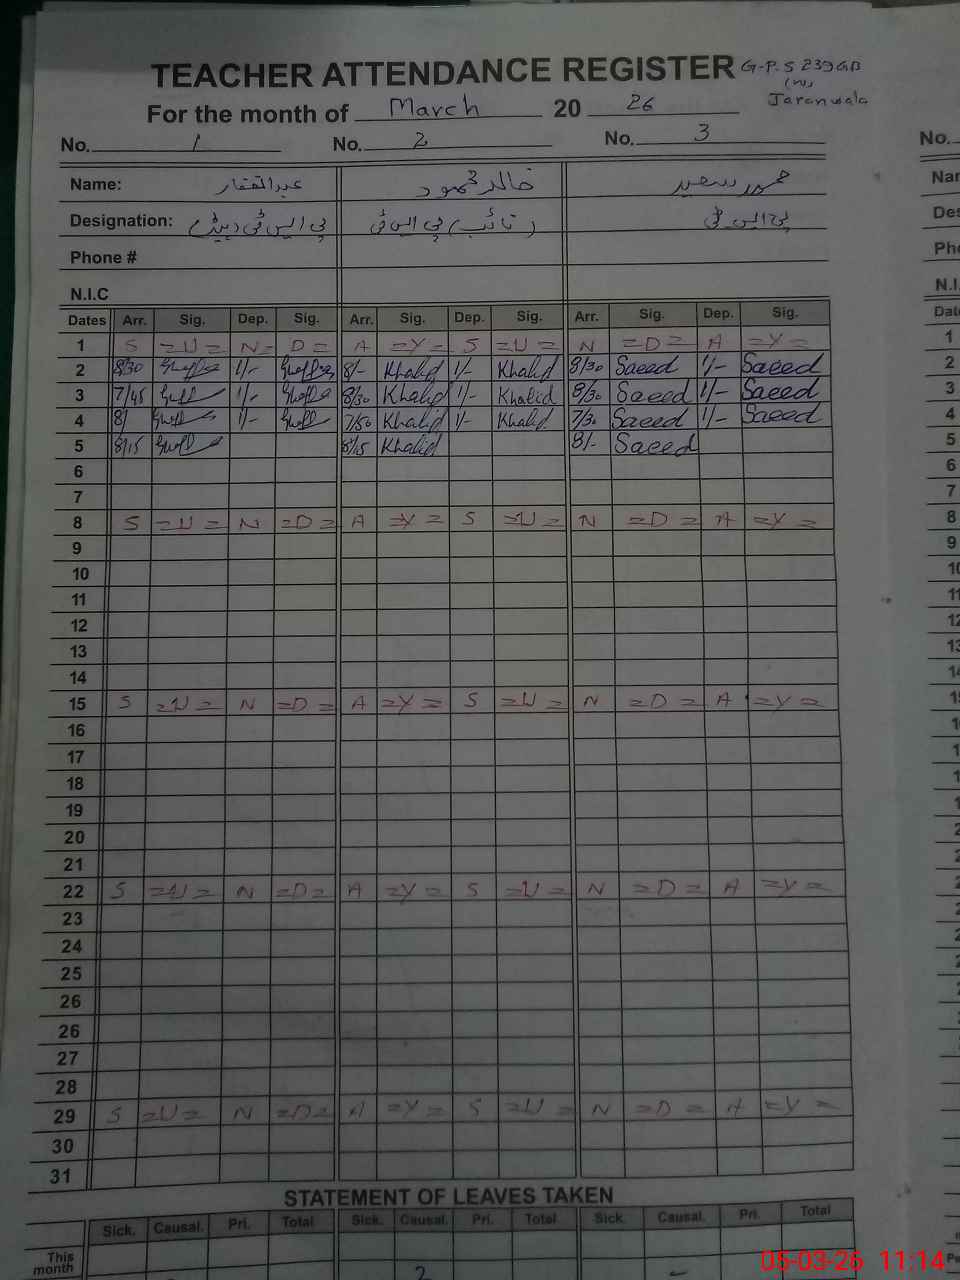 TEACHER ATTENDANCE REGISTER G.P.S 239GB
(W)
For the month of March 20 26 Jaranwala
No. 1 No. 2 No. 3 No.
Name: عبدالغفار خالد محمود محمد سعید
Designation: پی ایس ٹی (ہیڈ) پی ایس ٹی (نائب) پی ایس ٹی
Phone #
N.I.C
Dates Arr. Sig. Dep. Sig. Arr. Sig. Dep. Sig. Arr. Sig. Dep. Sig.
1 S =U= N= D= A =Y= S =U= N =D= A =Y=
2 8/30 1/- 8/- Khalid 1/- Khalid 8/30 Saeed 1/- Saeed
3 7/45 1/- 8/30 Khalid 1/- Khalid 8/30 Saeed 1/- Saeed
4 8/ 1/- 7/50 Khalid 1/- Khalid 7/30 Saeed 1/- Saeed
5 8/15 8/15 Khalid 8/- Saeed
6
7
8 S =U= N =D= A =Y= S =U= N =D= A =Y=
9
10
11
12
13
14
15 S =U= N =D= A =Y= S =U= N =D= A =Y=
16
17
18
19
20
21
22 S =U= N =D= A =Y= S =U= N =D= A =Y=
23
24
25
26
26
27
28
29 S =U= N =D= A =Y= S =U= N =D= A =Y=
30
31
STATEMENT OF LEAVES TAKEN
Sick. Causal. Pri. Total Sick. Causal. Pri. Total Sick. Causal. Pri. Total
This month 2
05-03-26 11:14